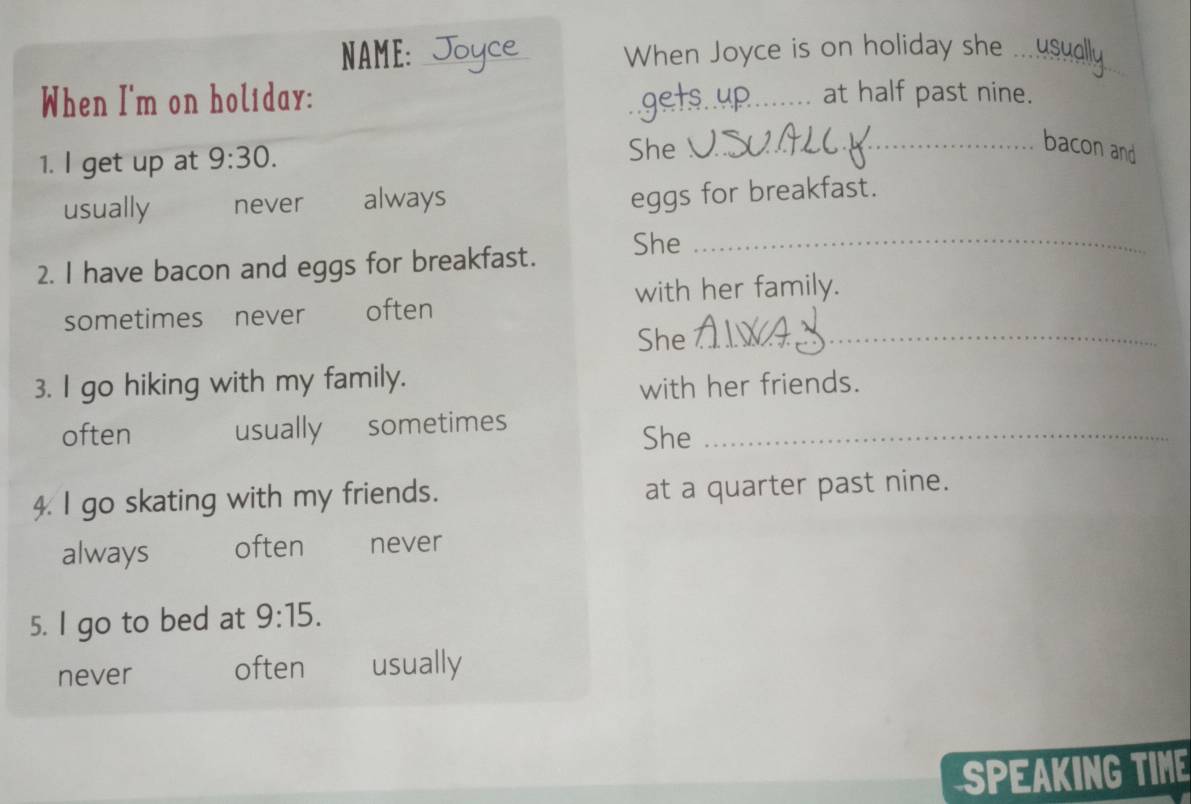 NAME: Joyce
When I'm on holiday:
1. I get up at 9:30.
usually never always
2. I have bacon and eggs for breakfast.
sometimes never often
3. I go hiking with my family.
often usually sometimes
4. I go skating with my friends.
always often never
5. I go to bed at 9:15.
never often usually
When Joyce is on holiday she ... usually
gets up ........ at half past nine.
She USUALLY ........ bacon and
eggs for breakfast.
She ........
with her family.
She AlWAy ........
with her friends.
She ........
at a quarter past nine.
SPEAKING TIME